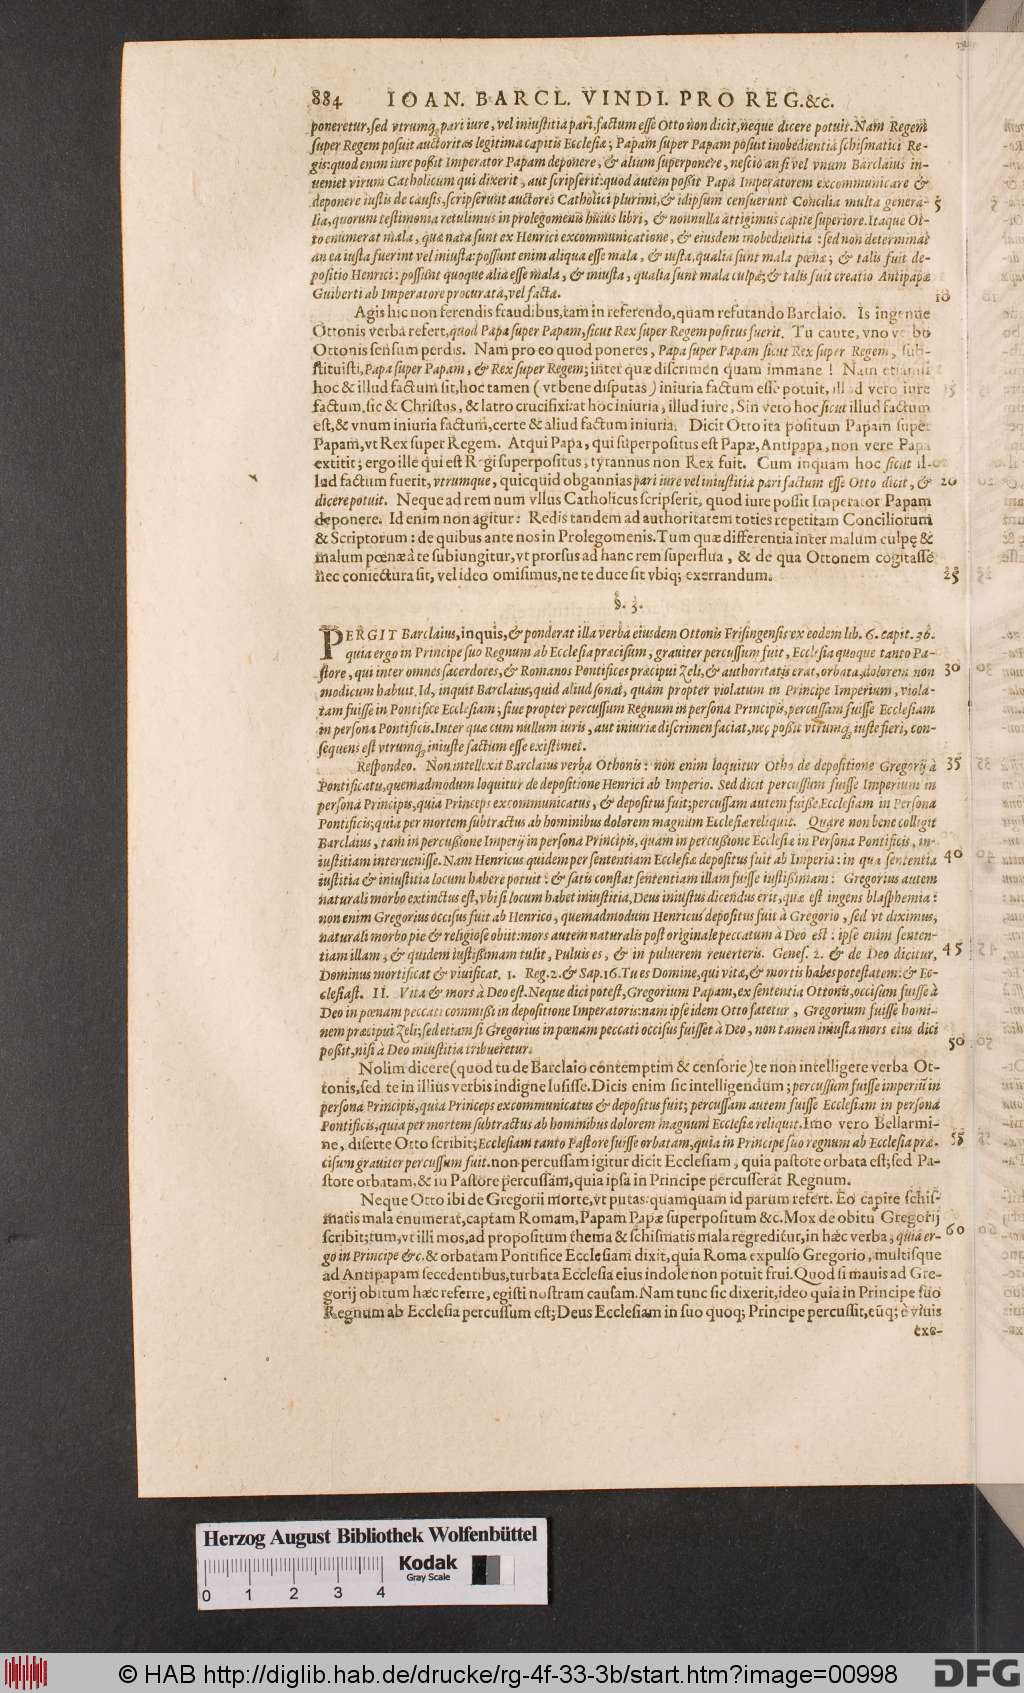 884 IOAN. BARCL. VINDI. PRO REG. &c.
poneretur, sed vtrumq; pari iure, vel iniustitia pari, factum esse Otto non dicit, neque dicere potuit. Nam Regem
super Regem posuit auctoritas legitima capitis Ecclesiæ; Papam super Papam posuit inobedientia schismatici Re-
gis: quod enim iure possit Imperator Papam deponere, & alium superponere, nescio an si vel vnum Barclaius in-
ueniet virum Catholicum qui dixerit, aut scripserit: quod autem possit Papa Imperatorem excommunicare &
deponere iustis de causis, scripserunt auctores Catholici plurimi, & idipsum censuerunt Concilia multa genera- 5
lia, quorum testimonia retulimus in prolegomenis huius libri, & nonnulla attigimus capite superiore. Itaque Ot-
to enumerat mala, quæ nata sunt ex Henrici excommunicatione, & eiusdem inobedientia: sed non determinat
an ea iusta fuerint vel iniusta: possunt enim aliqua esse mala, & iusta, qualia sunt mala pœnæ; & talis fuit de-
positio Henrici: possunt quoque alia esse mala, & iniusta, qualia sunt mala culpæ; & talis fuit creatio Antipapæ
Guiberti ab Imperatore procurata, vel facta. 10
Agis hic non ferendis fraudibus, tam in referendo, quam refutando Barclaio. Is ingenue
Ottonis verba refert, quod Papa super Papam, sicut Rex super Regem positus fuerit. Tu caute, vno verbo
Ottonis sensum perdis. Nam pro eo quod poneres, Papa super Papam sicut Rex super Regem, sub-
stituisti, Papa super Papam, & Rex super Regem; inter quæ discrimen quam immane! Nam etiamsi
hoc & illud factum sit, hoc tamen (vt bene disputas) iniuria factum esse potuit, illud vero iure 15
factum, sic & Christus, & latro crucifixi: at hoc iniuria, illud iure, Sin vero hoc sicut illud factum
est, & vnum iniuria factum, certe & aliud factum iniuria. Dicit Otto ita positum Papam super
Papam, vt Rex super Regem. Atqui Papa, qui superpositus est Papæ, Antipapa, non vere Papa
extitit; ergo ille qui est Regi superpositus, tyrannus non Rex fuit. Cum inquam hoc sicut il-
lud factum fuerit, vtrumque, quicquid obgannias pari iure vel iniustitia pari factum esse Otto dicit, & 20
dicere potuit. Neque ad rem num vllus Catholicus scripserit, quod iure possit Imperator Papam
deponere. Id enim non agitur: Redis tandem ad authoritatem toties repetitam Conciliorum
& Scriptorum: de quibus ante nos in Prolegomenis. Tum quæ differentia inter malum culpę &
malum pœnæ à te subiungitur, vt prorsus ad hanc rem superflua, & de qua Ottonem cogitasse
nec coniectura sit, vel ideo omisimus, ne te duce sit vbiq; exerrandum. 25
§. 3.
PERGIT Barclaius, inquis, & ponderat illa verba eiusdem Ottonis Frisingensis ex eodem lib. 6. capit. 36.
quia ergo in Principe suo Regnum ab Ecclesia præcisum, grauiter percussum fuit, Ecclesia quoque tanto Pa-
store, qui inter omnes sacerdotes, & Romanos Pontifices præcipui Zeli, & authoritatis erat, orbata, dolorem non 30
modicum habuit. Id, inquit Barclaius, quid aliud sonat, quàm propter violatum in Principe Imperium, viola-
tam fuisse in Pontifice Ecclesiam; siue propter percussum Regnum in persona Principis, percussam fuisse Ecclesiam
in persona Pontificis. Inter quæ cum nullum iuris, aut iniuriæ discrimen faciat, neq; possit vtrumq; iuste fieri, con-
sequens est vtrumq; iniuste factum esse existimet.
Respondeo. Non intellexit Barclaius verba Othonis: non enim loquitur Otho de depositione Gregorij à 35
Pontificatu, quemadmodum loquitur de depositione Henrici ab Imperio. Sed dicit percussum fuisse Imperium in
persona Principis, quia Princeps excommunicatus, & depositus fuit; percussam autem fuisse Ecclesiam in Persona
Pontificis; quia per mortem subtractus ab hominibus dolorem magnum Ecclesiæ reliquit. Quare non bene colligit
Barclaius, tam in percussione Imperij in persona Principis, quam in percussione Ecclesiæ in Persona Pontificis, in-
iustitiam interuenisse. Nam Henricus quidem per sententiam Ecclesiæ depositus fuit ab Imperia: in qua sententia 40
iustitia & iniustitia locum habere potuit: & satis constat sententiam illam fuisse iustissimam: Gregorius autem
naturali morbo extinctus est, vbi si locum habet iniustitia, Deus iniustus dicendus erit, quæ est ingens blasphemia:
non enim Gregorius occisus fuit ab Henrico, quemadmodum Henricus depositus fuit à Gregorio, sed vt diximus,
naturali morbo pie & religiose obiit: mors autem naturalis post originale peccatum à Deo est: ipse enim senten-
tiam illam, & quidem iustissimam tulit, Puluis es, & in puluerem reuerteris. Genes. 2. & de Deo dicitur, 45
Dominus mortificat & viuificat, 1. Reg. 2. & Sap. 16. Tu es Domine, qui vitæ, & mortis habes potestatem: & Ec-
clesiast. 11. Vita & mors à Deo est. Neque dici potest, Gregorium Papam, ex sententia Ottonis, occisum fuisse à
Deo in pœnam peccati commissi in depositione Imperatoris: nam ipse idem Otto fatetur, Gregorium fuisse homi-
nem præcipui Zeli; sed etiam si Gregorius in pœnam peccati occisus fuisset à Deo, non tamen iniusta mors eius dici
possit, nisi à Deo iniustitia tribueretur. 50
Nolim dicere (quod tu de Barclaio contemptim & censorie) te non intelligere verba Ot-
tonis, sed te in illius verbis indigne lusisse. Dicis enim sic intelligendum; percussum fuisse imperiū in
persona Principis, quia Princeps excommunicatus & depositus fuit; percussam autem fuisse Ecclesiam in persona
Pontificis, quia per mortem subtractus ab hominibus dolorem magnum Ecclesiæ reliquit. Imo vero Bellarmi-
ne, diserte Otto scribit; Ecclesiam tanto Pastore fuisse orbatam, quia in Principe suo regnum ab Ecclesia præ- 55
cisum grauiter percussum fuit. non percussam igitur dicit Ecclesiam, quia pastore orbata est; sed Pa-
store orbatam, & in Pastore percussam, quia ipsa in Principe percusserat Regnum.
Neque Otto ibi de Gregorii morte, vt putas: quamquam id parum refert. Eo capite schis-
matis mala enumerat, captam Romam, Papam Papæ superpositum &c. Mox de obitu Gregorij
scribit; tum, vt illi mos, ad propositum thema & schismatis mala regreditur, in hæc verba; quia er- 60
go in Principe &c. & orbatam Pontifice Ecclesiam dixit, quia Roma expulso Gregorio, multisque
ad Antipapam secedentibus, turbata Ecclesia eius indole non potuit frui. Quod si mauis ad Gre-
gorij obitum hæc referre, egisti nostram causam. Nam tunc sic dixerit, ideo quia in Principe suo
Regnum ab Ecclesia percussum est; Deus Ecclesiam in suo quoq; Principe percussit, eūq; è viuis
exe-
Herzog August Bibliothek Wolfenbüttel
0 1 2 3 4
Kodak
Gray Scale
© HAB http://diglib.hab.de/drucke/rg-4f-33-3b/start.htm?image=00998
DFG